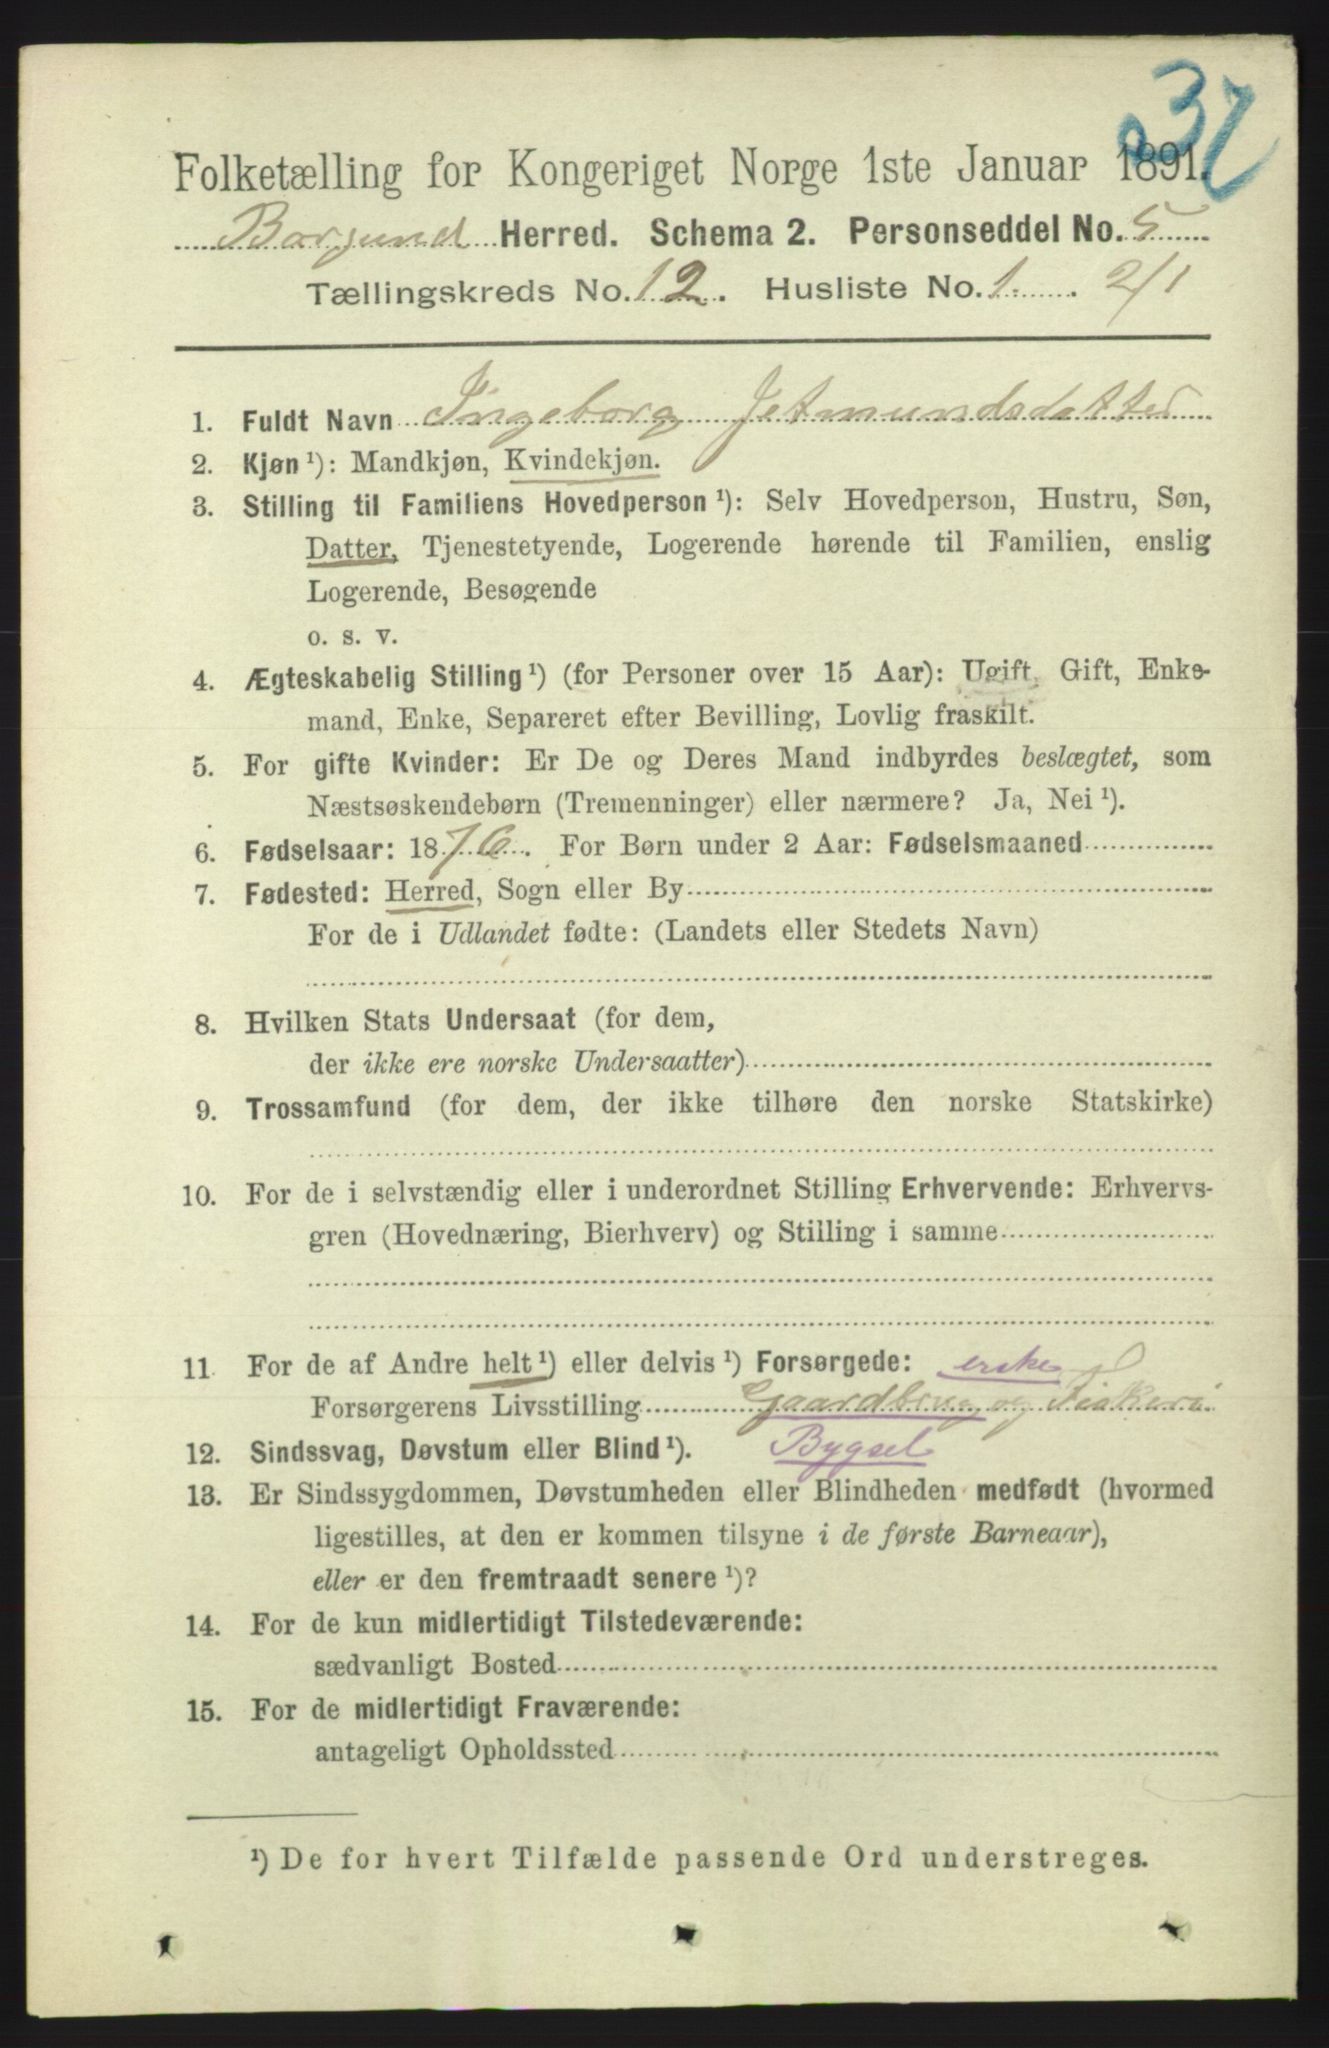 37
Folketælling for Kongeriget Norge 1ste Januar 1891.
Borgund Herred. Schema 2. Personseddel No. 5
Tællingskreds No. 12. Husliste No. 1. 2/1
1. Fuldt Navn Ingeborg Jetmundsdatter
2. Kjøn ¹): Mandkjøn, Kvindekjøn.
3. Stilling til Familiens Hovedperson ¹): Selv Hovedperson, Hustru, Søn,
Datter, Tjenestetyende, Logerende hørende til Familien, enslig
Logerende, Besøgende
o. s. v.
4. Ægteskabelig Stilling ¹) (for Personer over 15 Aar): Ugift, Gift, Enke-
mand, Enke, Separeret efter Bevilling, Lovlig fraskilt.
5. For gifte Kvinder: Er De og Deres Mand indbyrdes beslægtet, som
Næstsøskendebørn (Tremenninger) eller nærmere? Ja, Nei ¹).
6. Fødselsaar: 1876. For Børn under 2 Aar: Fødselsmaaned
7. Fødested: Herred, Sogn eller By
For de i Udlandet fødte: (Landets eller Stedets Navn)
8. Hvilken Stats Undersaat (for dem,
der ikke ere norske Undersaatter)
9. Trossamfund (for dem, der ikke tilhøre den norske Statskirke)
10. For de i selvstændig eller i underordnet Stilling Erhvervende: Erhvervs-
gren (Hovednæring, Bierhverv) og Stilling i samme
11. For de af Andre helt ¹) eller delvis ¹) Forsørgede:
Forsørgerens Livsstilling Gaardbrug og Fiskeri
12. Sindssvag, Døvstum eller Blind ¹). Bygsel
13. Er Sindssygdommen, Døvstumheden eller Blindheden medfødt (hvormed
ligestilles, at den er kommen tilsyne i de første Barneaar),
eller er den fremtraadt senere ¹)?
14. For de kun midlertidigt Tilstedeværende:
sædvanligt Bosted
15. For de midlertidigt Fraværende:
antageligt Opholdssted
¹) De for hvert Tilfælde passende Ord understreges.